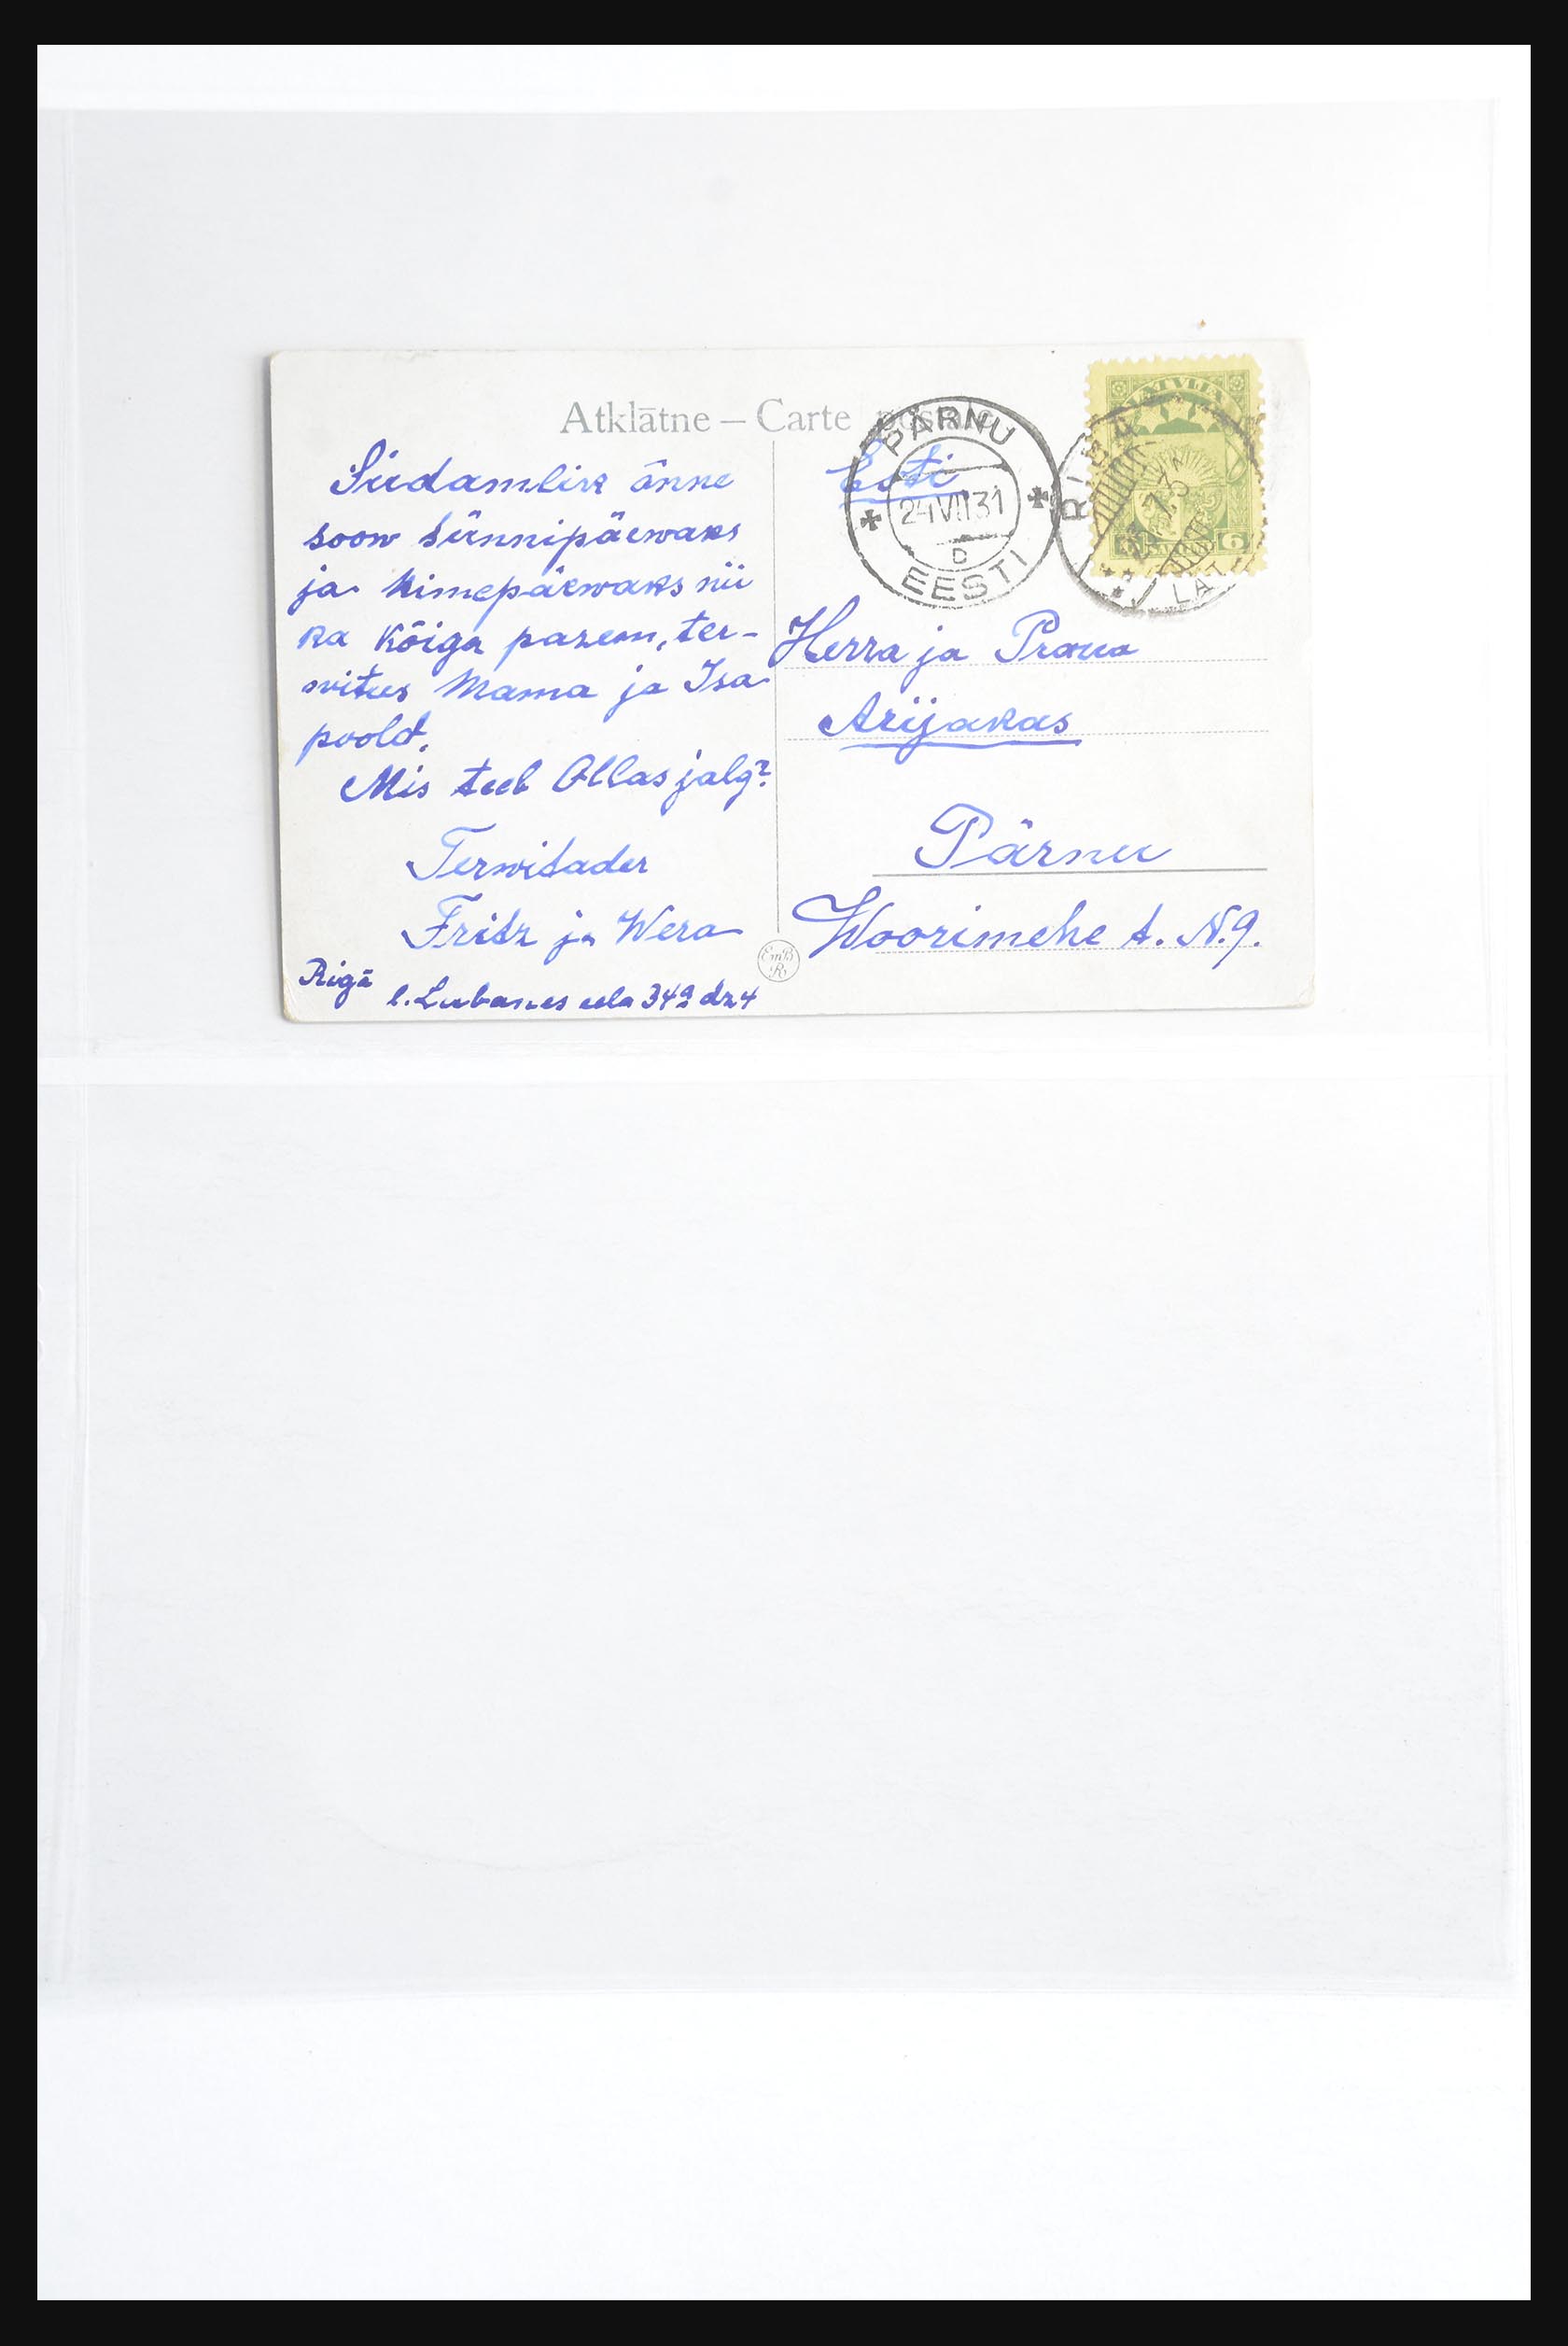 Atklātne — Carte postale
Südamlik õnne
soow sünnipäewaks
ja nimepäewaks nii
ka kõiga parem, ter-
witus Mama ja Isa
poolt.
Mis teeb Ollas jalg?
Terwitades
Fritz ja Wera
Rigā
l. Lubanes iela 34a dz 4
EmB
R
Eesti
PÄRNU
24 VII 31
D
EESTI
LATVIJA
6
Herra ja Proua
Arijakas
Pärnu
Woorimehe t. N. 9.